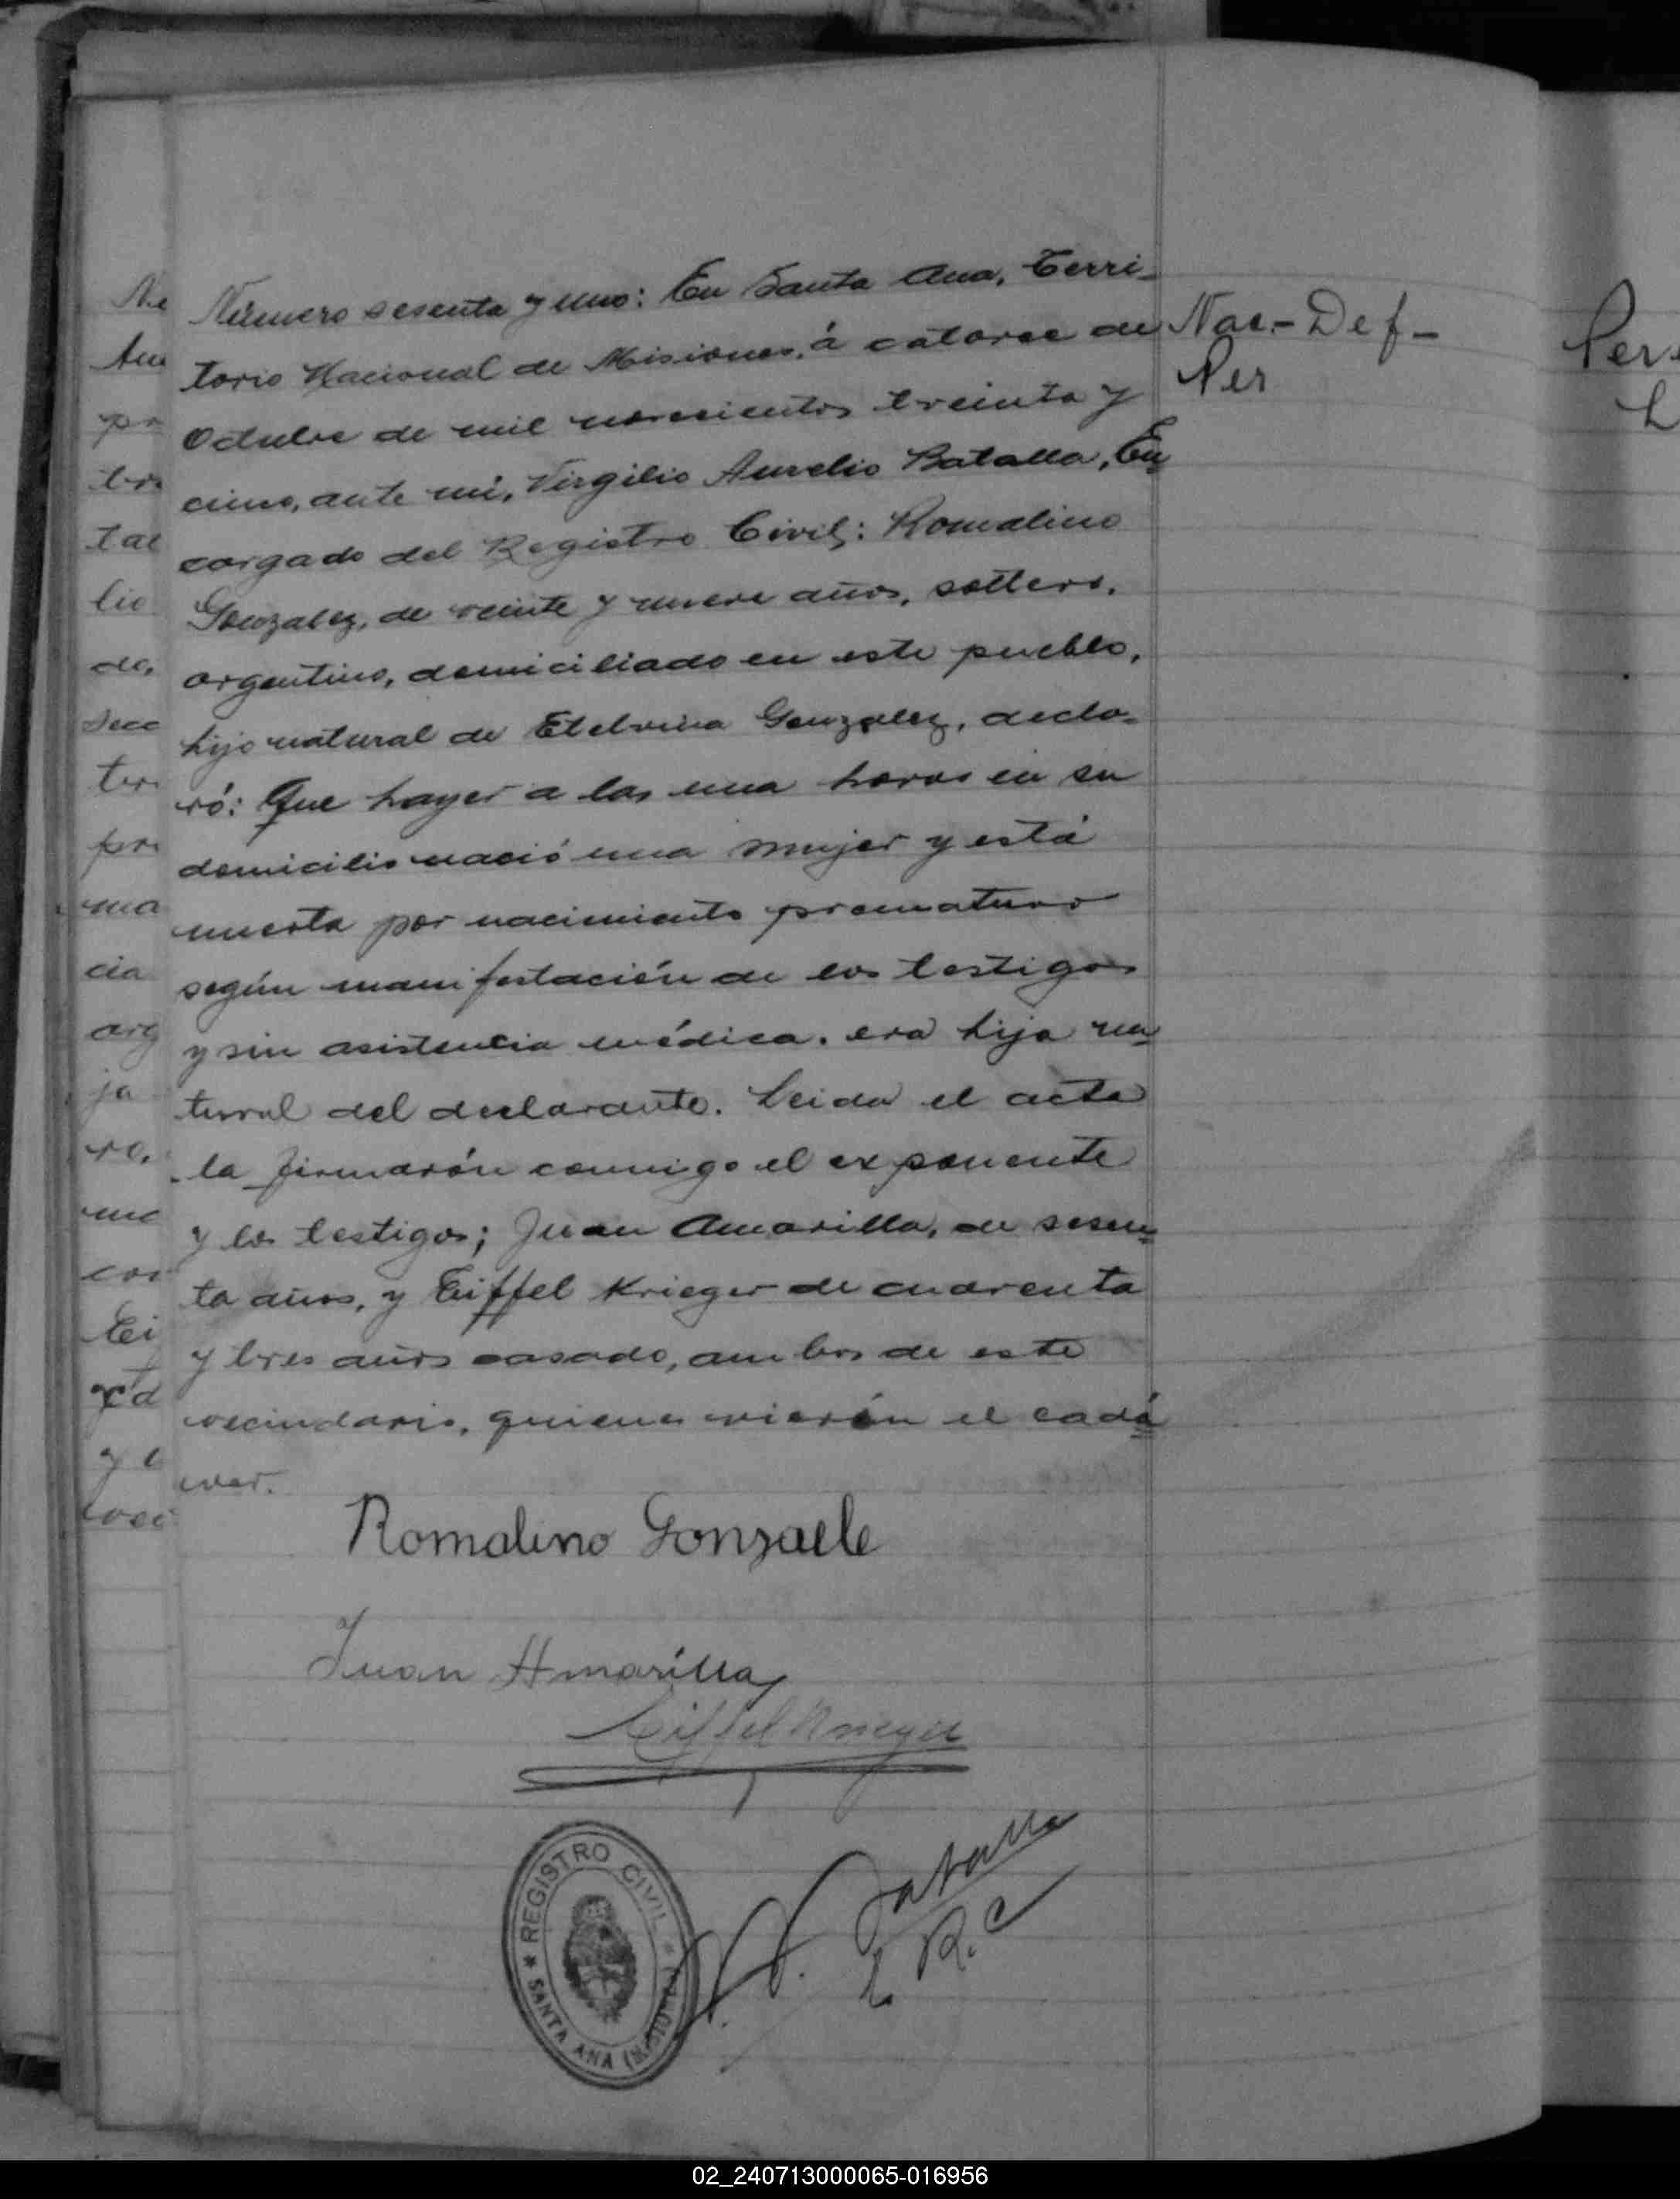 Número sesenta y uno: En Santa Ana, Terri-
torio Nacional de Misiones, á catorce de
Octubre de mil novecientos treinta y
cinco, ante mí, Virgilio Aurelio Batalla, En-
cargado del Registro Civil; Romalino
Gonzalez, de veinte y nueve años, soltero,
argentino, domiciliado en este pueblo,
hijo natural de Etelvina Gonzalez, decla-
ró: Que hayer a las una horas en su
domicilio nació una mujer y está
muerta por nacimiento prematuro
según manifestación de los testigos
y sin asistencia médica. era hija na-
tural del declarante. Leida el acta
la firmarón conmigo el exponente
y los testigos; Juan Amarilla, de sesen-
ta años, y Eiffel Krieger de cuarenta
y tres años casado, ambos de este
vecindario, quienes vierón el cadá
ver.
Nac.- Def-
Per
Romalino Gonzaele
Juan Amarilla
Eiffel Krieger
Batalla
E. R. C
REGISTRO CIVIL
* SANTA ANA (MISIONES) *
Ne
Ana
tal
lio
do,
ter
ma
cia
arg
ja
ro,
Ei
y d
Per
L
02_240713000065-016956